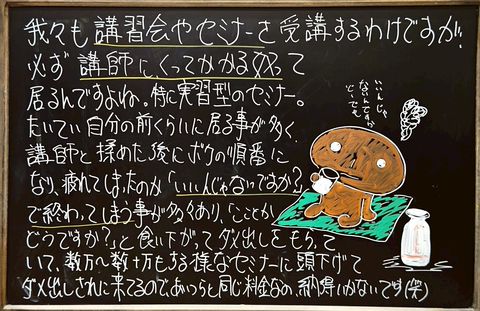 我々も講習会やセミナーを受講するわけですが、
必ず講師にくってかかる奴って
居るんですよね。特に実習型のセミナー。
たいてい自分の前くらいに居る事が多く、
講師と揉めた後にボクの順番に
なり、疲れてしまったのか「いいんじゃないですか?」
で終わってしまう事が多くあり、「ことか
どうですか?」と食い下がってダメ出しをもらって
いて、数万〜数十万もする様なセミナーに頭下げて
ダメ出しされに来てるので、あいつらと同じ料金なの、納得いかないです(笑)
いいんじゃ
ないんですか
どーでも